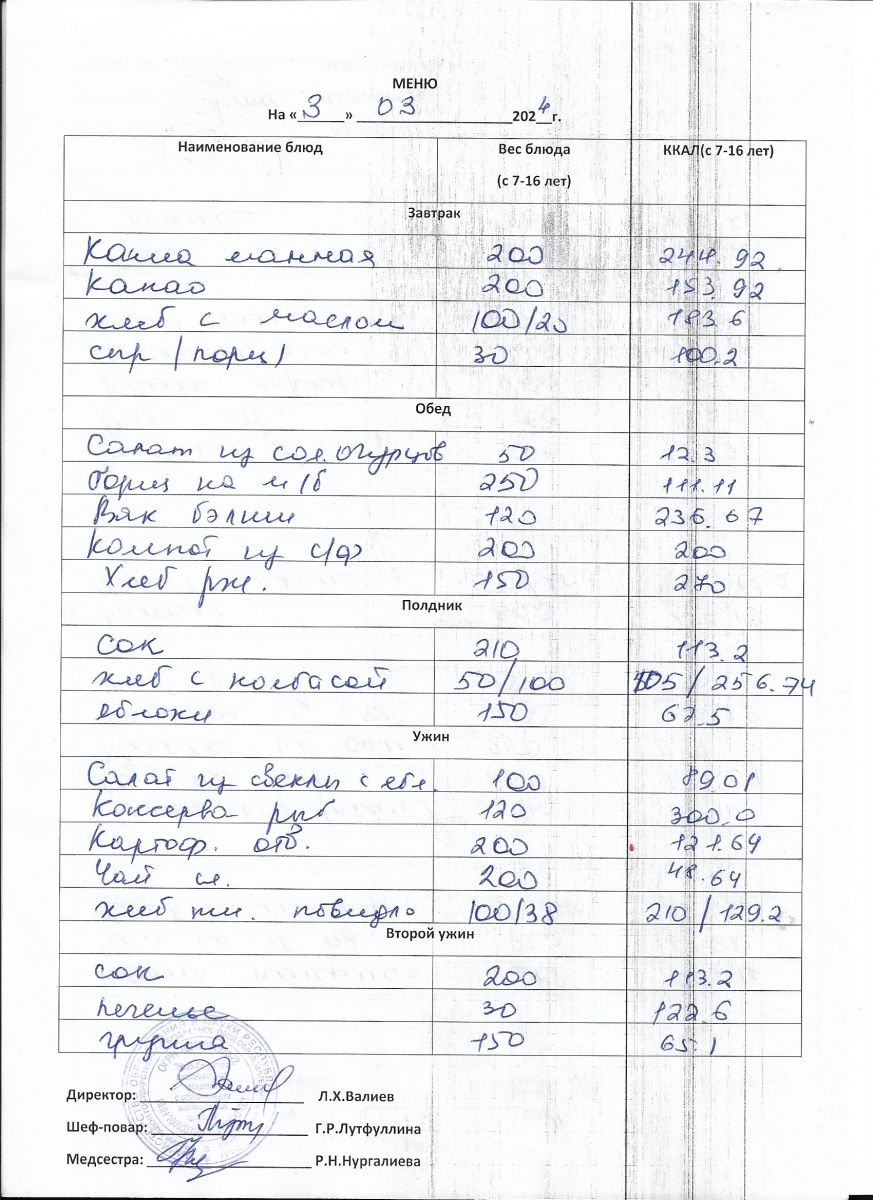 МЕНЮ
На « 3 » 03 2024 г.
Наименование блюд Вес блюда (с 7-16 лет) ККАЛ(с 7-16 лет)
Завтрак
Каша манная 200 244.92
Какао 200 153.92
хлеб с маслом 100/20 183.6
сыр (порц) 30 100.2
Обед
Салат из сол. огурцов 50 12.3
Борщ на м/б 250 111.11
Вяк бэлиш 120 236.67
Компот из с/ф 200 200
Хлеб рж. 150 270
Полдник
сок 210 113.2
хлеб с колбасой 50/100 105/256.74
яблоки 150 62.5
Ужин
Салат из свеклы с ябл. 100 89.01
Консерва рыб 120 300.0
Картоф. отв. 200 121.64
Чай сл. 200 48.64
хлеб пш. повидло 100/38 210/129.2
Второй ужин
сок 200 113.2
печенье 30 122.6
груша 150 65.1
Директор: Л.Х.Валиев
Шеф-повар: Г.Р.Лутфуллина
Медсестра: Р.Н.Нургалиева